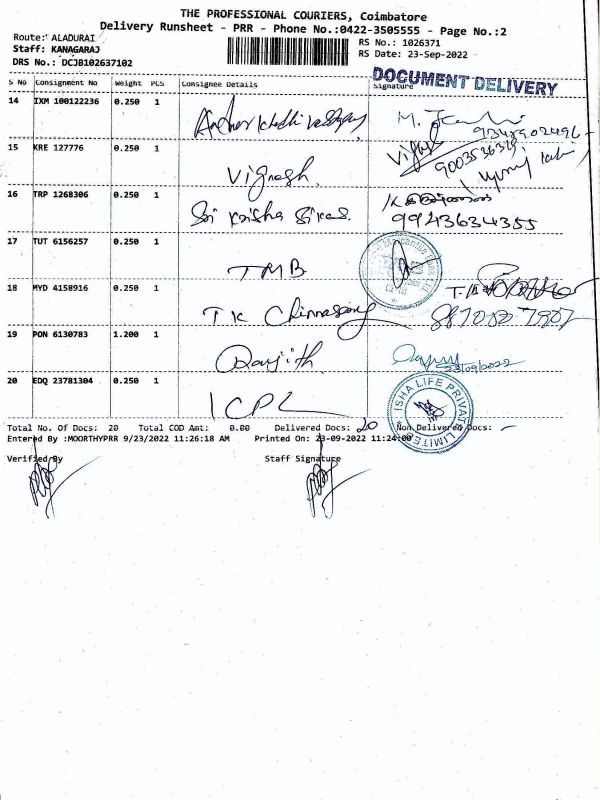 THE PROFESSIONAL COURIERS, Coimbatore
Delivery Runsheet - PRR - Phone No.:0422-3505555 - Page No.:2
Route: ALADURAI
RS No.: 1026371
Staff: KANAGARAJ
RS Date: 23-Sep-2022
DRS No.: DCJB102637102
DOCUMENT DELIVERY
S No Consignment No Weight PCS Consignee Details Signature
14 IXM 100122236 0.250 1
15 KRE 127776 0.250 1 Vignesh
9003536319
16 TRP 1268306 0.250 1 Sri Krisha
9943634355
17 TUT 6156257 0.250 1 TMB
18 MYD 4158916 0.250 1 TK Chinnasamy
19 PON 6130783 1.200 1 Ranjith
23/09/2022
20 EDQ 23781304 0.250 1 ICPL
ISHA LIFE PRIVATE LIMITED
Total No. Of Docs: 20 Total COD Amt: 0.00 Delivered Docs: 20 Non Delivered Docs: -
Entered By :MOORTHYPRR 9/23/2022 11:26:18 AM Printed On: 23-09-2022 11:24:00
Verified By Staff Signature